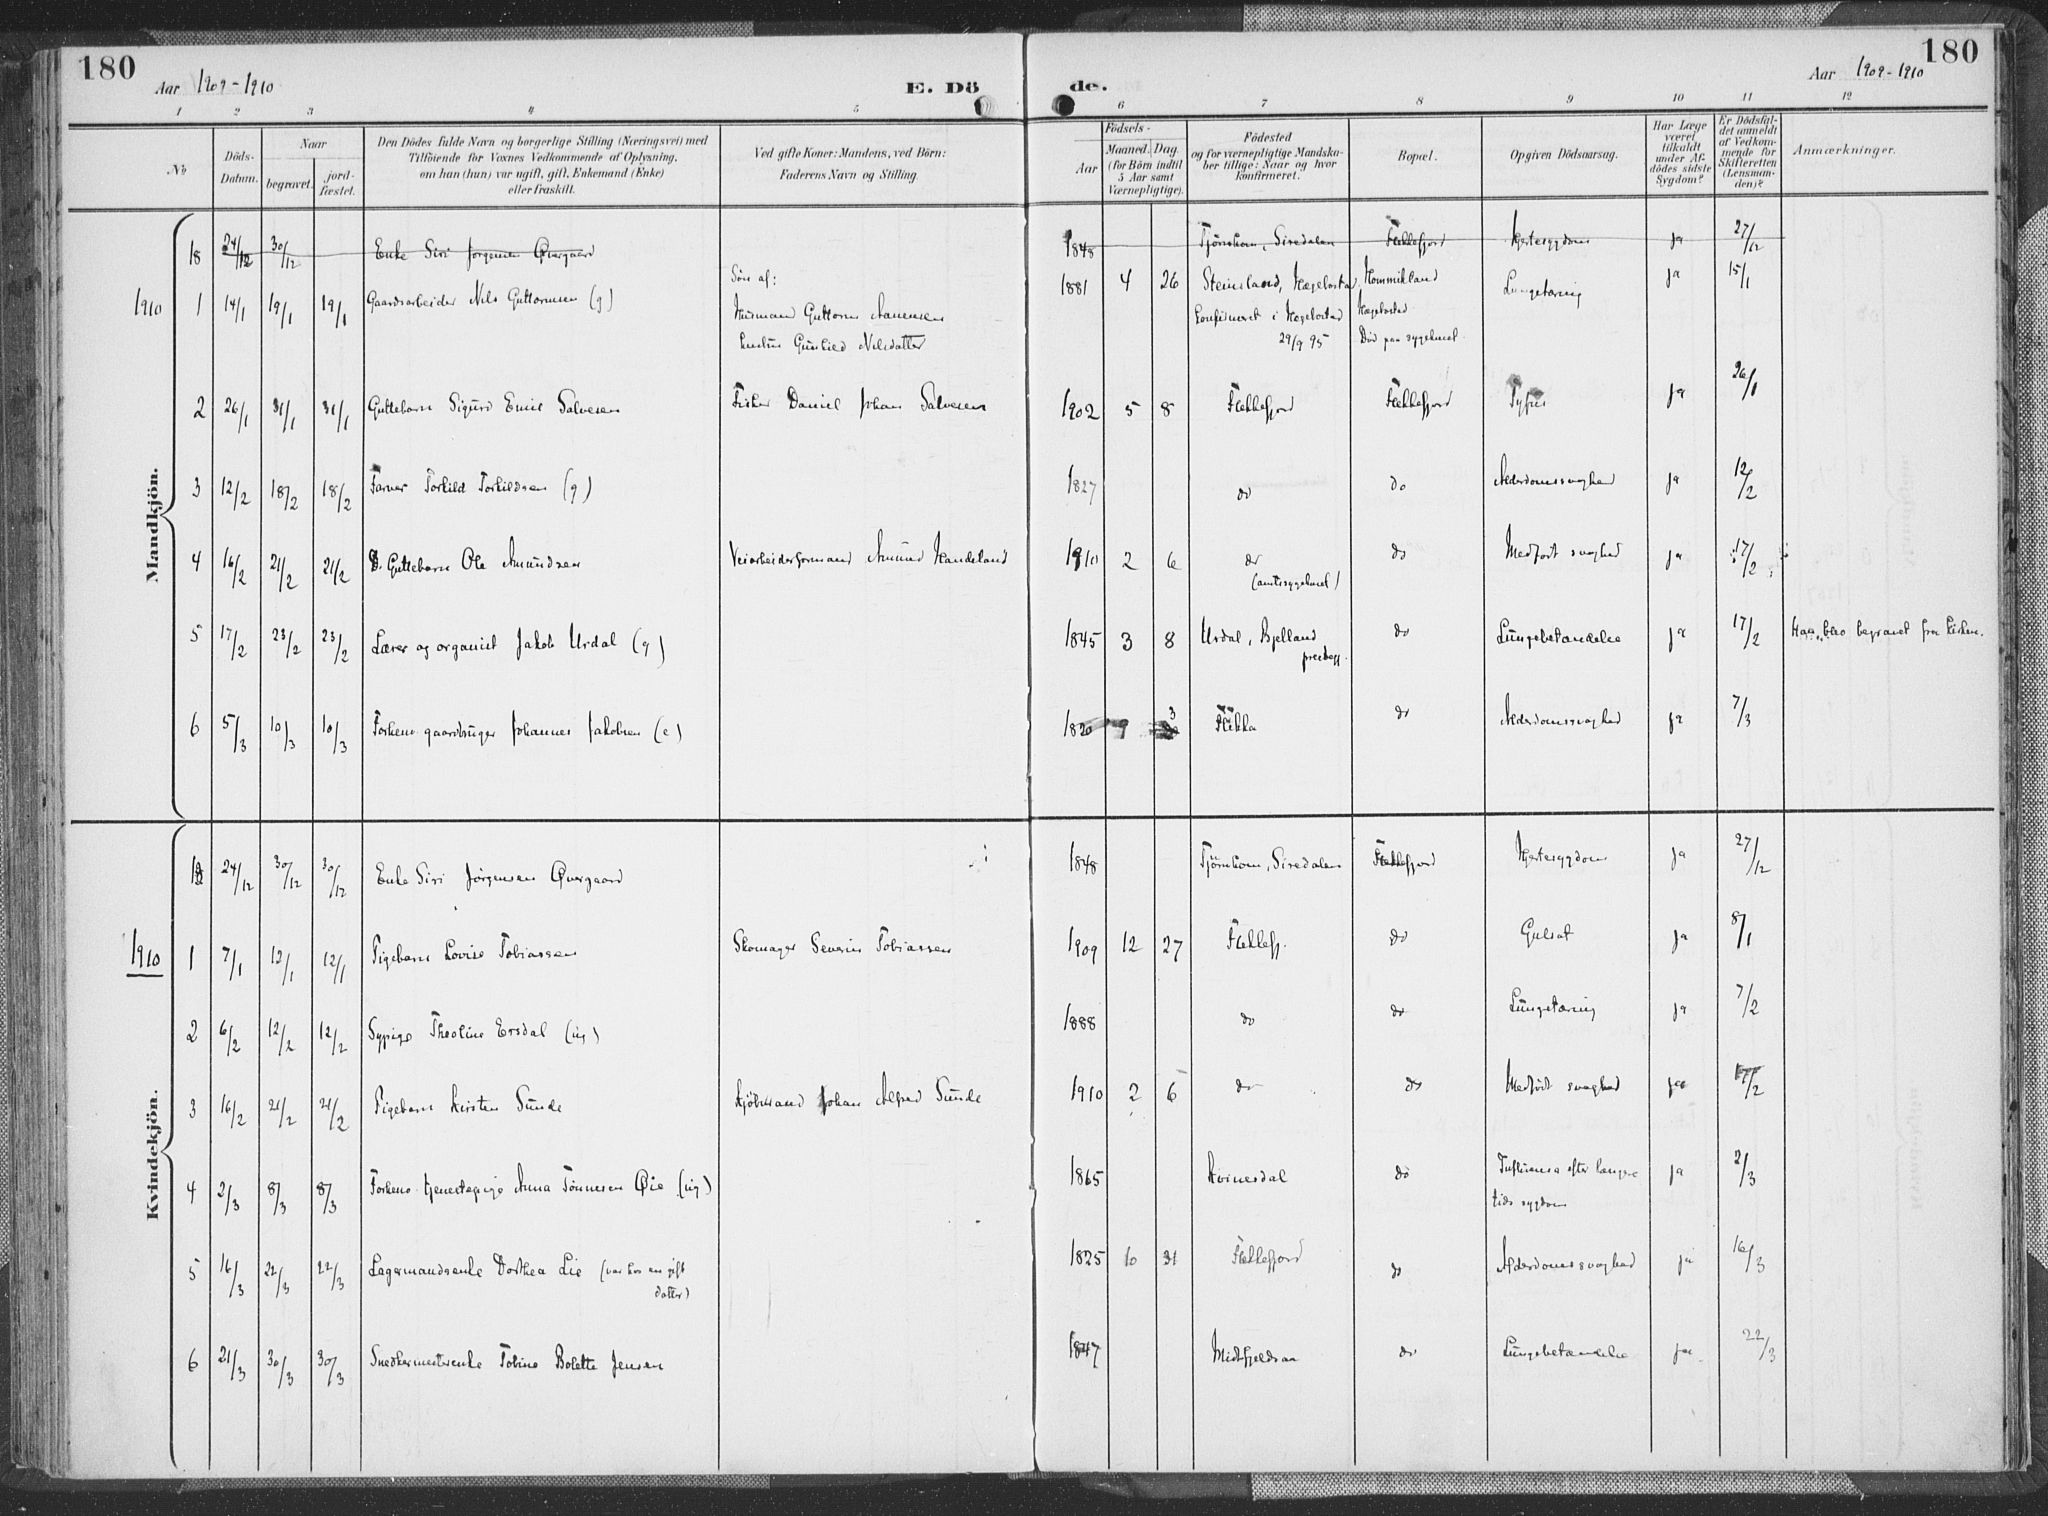 180
Aar 1909-1910
E. Dö
de.
Aar 1909-1910
180
1 2 3 4 5 6 7 8 9 10 11 12
No
Döds-Datum.
Naar
begravet. jord-fæstet.
Den Dödes fulde Navn og borgerlige Stilling (Næringsvei) med
Tilföiende for Voxnes Vedkommende af Oplysning,
om han (hun) var ugift, gift, Enkemand (Enke)
eller fraskilt.
Ved gifte Koner: Mandens, ved Börn:
Faderens Navn og Stilling.
Födsels-
Aar
Maaned. Dag.
(for Börn indtil
5 Aar samt
Værnepligtige).
Födested
og for værnepligtige Mandska-
ber tillige: Naar og hvor
konfirmeret.
Bopæl.
Opgiven Dödsaarsag.
Har Læge
været
tilkaldt
under Af-
dödes sidste
Sygdom?
Er Dödsfal-
det anmeldt
af Vedkom-
mende for
Skifteretten
(Lensman-
den)?
Anmærkninger.
Mandkjön.
18 24/12 30/12 Enke Siri Jørgensen Øvergaard 1848 Tjørnhom, Siredalen Flekkefjord Hjertesygdom ja 27/12
1910 1 14/1 19/1 19/1 Gaardsarbeider Nils Guttormsen (g) Søn af: 1881 4 26 Steinsland, Hægebostad Hommikland Lungetæring ja 15/1
Husmand Guttorm Aanensen Konfirmeret i Hægebostad Hægebostad
hustru Gunhild Nilsdatter 29/9 95 Død paa sygehuset
2 26/1 31/1 31/1 Guttebarn Sigurd Emil Salvesen Fisker Daniel Johan Salvesen 1902 5 8 Flekkefjord Flekkefjord Tyfus ja 26/1
3 12/2 18/2 18/2 Farver Torkild Torkildsen (g) 1827 do do Alderdomssvaghed ja 12/2
4 16/2 21/2 21/2 Guttebarn Ole Amundsen Veiarbeiderformand Amund Handeland 1910 2 6 do do Medfødt svaghed ja 17/2
(amtssygehuset)
5 17/2 23/2 23/2 Lærer og organist Jakob Urdal (g) 1845 3 8 Urdal, Bjelland do Lungebetændelse ja 17/2 Han blev begravet fra kirken.
prestegj.
6 5/3 10/3 10/3 Forhenv. gaardbruger Johannes Jakobsen (e) 1820 9 3 Flikka do Alderdomssvaghed ja 7/3
Kvindekjön.
18 24/12 30/12 30/12 Enke Siri Jørgensen Øvergaard 1848 Tjørnhom, Siredalen Flekkefjord Hjertesygdom ja 27/12
1910 1 7/1 12/1 12/1 Pigebarn Lovise Tobiassen Skomager Severin Tobiassen 1909 12 27 Flekkefj. do Gulsot ja 8/1
2 6/2 12/2 12/2 Sypige Theoline Ersdal (ug) 1888 do do Lungetæring ja 7/2
3 16/2 21/2 21/2 Pigebarn Kirsten Sunde Kjøbmand Johan Alfred Sunde 1910 2 6 do do Medfødt svaghed ja 17/2
4 2/3 8/3 8/3 Forhenv. tjenestepige Anna Tønnesen Øie (ug) 1865 Kvinesdal do Influensa efter længre ja 2/3
tids sygdom
5 16/3 22/3 22/3 Lagermandsenke Dorthea Lie (var hos en gift 1825 10 31 Flekkefjord do Alderdomssvaghed ja 16/3
datter)
6 21/3 30/3 30/3 Snedkermesterenke Tobine Bolette Jensen 1847 do Lungebetændelse ja 22/3